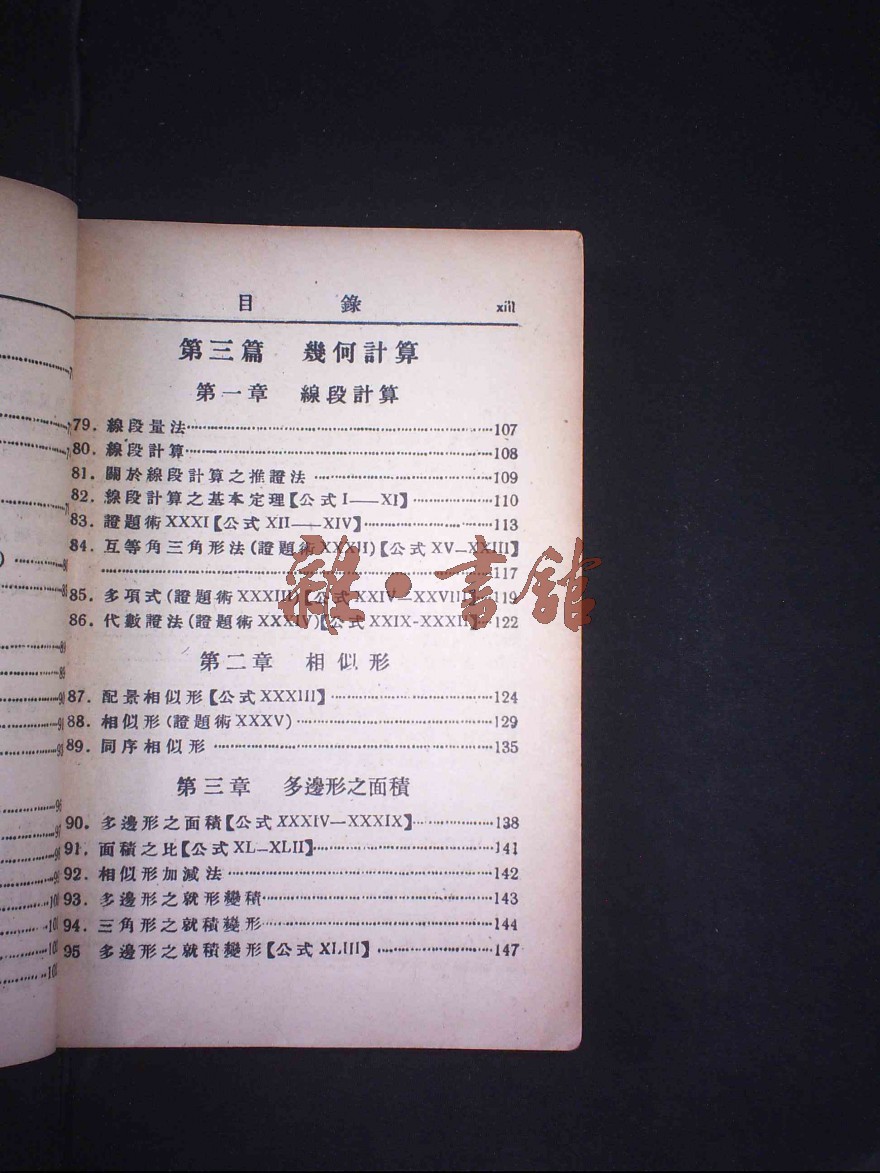 目 錄 xiii
第三篇 幾何計算
第一章 線段計算
79. 線段量法 107
80. 線段計算 108
81. 關於線段計算之推證法 109
82. 線段計算之基本定理【公式 I——XI】 110
83. 證題術XXXI【公式 XII——XIV】 113
84. 互等角三角形法(證題術XXXII)【公式 XV—XXIII】
117
85. 多項式(證題術XXXIII)【公式 XXIV—XXVIII】 119
86. 代數證法(證題術XXXIV)【公式 XXIX-XXXII】 122
第二章 相似形
87. 配景相似形【公式XXXIII】 124
88. 相似形(證題術XXXV) 129
89. 同序相似形 135
第三章 多邊形之面積
90. 多邊形之面積【公式XXXIV—XXXIX】 138
91. 面積之比【公式 XL—XLII】 141
92. 相似形加減法 142
93. 多邊形之就形變積 143
94. 三角形之就積變形 144
95 多邊形之就積變形【公式 XLIII】 147
雜·書館